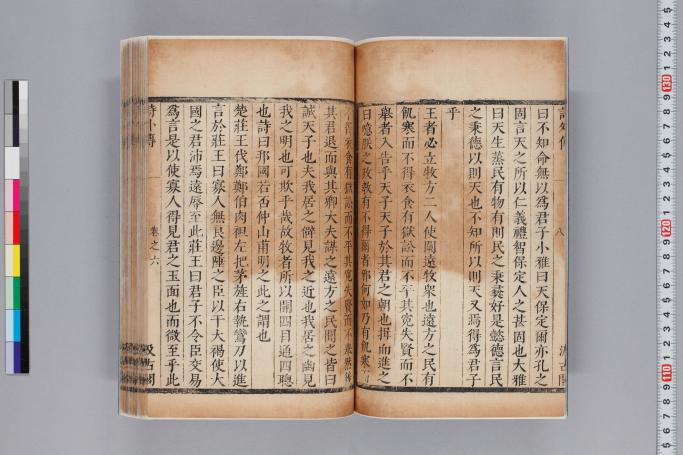 曰不知命無以爲君子小雅曰天保定爾亦孔之
固言天之所以仁義禮智保定人之甚固也大雅
曰天生蒸民有物有則民之秉彝好是懿德言民
之秉德以則天也不知所以則天又焉得爲君子
乎
王者必立牧方二人使闚遠牧衆也遠方之民有
飢寒而不得衣食有獄訟而不平其寃失賢而不
舉者入告乎天子天子於其君之朝也揖而進之
曰噫朕之政教有不得爾者邪何如乃有飢寒
不得衣食有獄訟而不平其寃失賢而不舉然後
其君退而與其卿大夫謀之遠方之民聞之皆曰
誠天子也夫我居之僻見我之近也我居之幽見
我之明也可欺乎哉故牧者所以開四目通四聰
也詩曰邦國若否仲山甫明之此之謂也
楚莊王伐鄭鄭伯肉袒左把茅旌右執鸞刀以進
言於莊王曰寡人無良邊陲之臣以干大禍使大
國之君沛焉遠辱至此莊王曰君子不令臣交易
爲言是以使寡人得見君之玉面也而微至乎此
詩外傳
卷之六
汲古閣
130
120
110